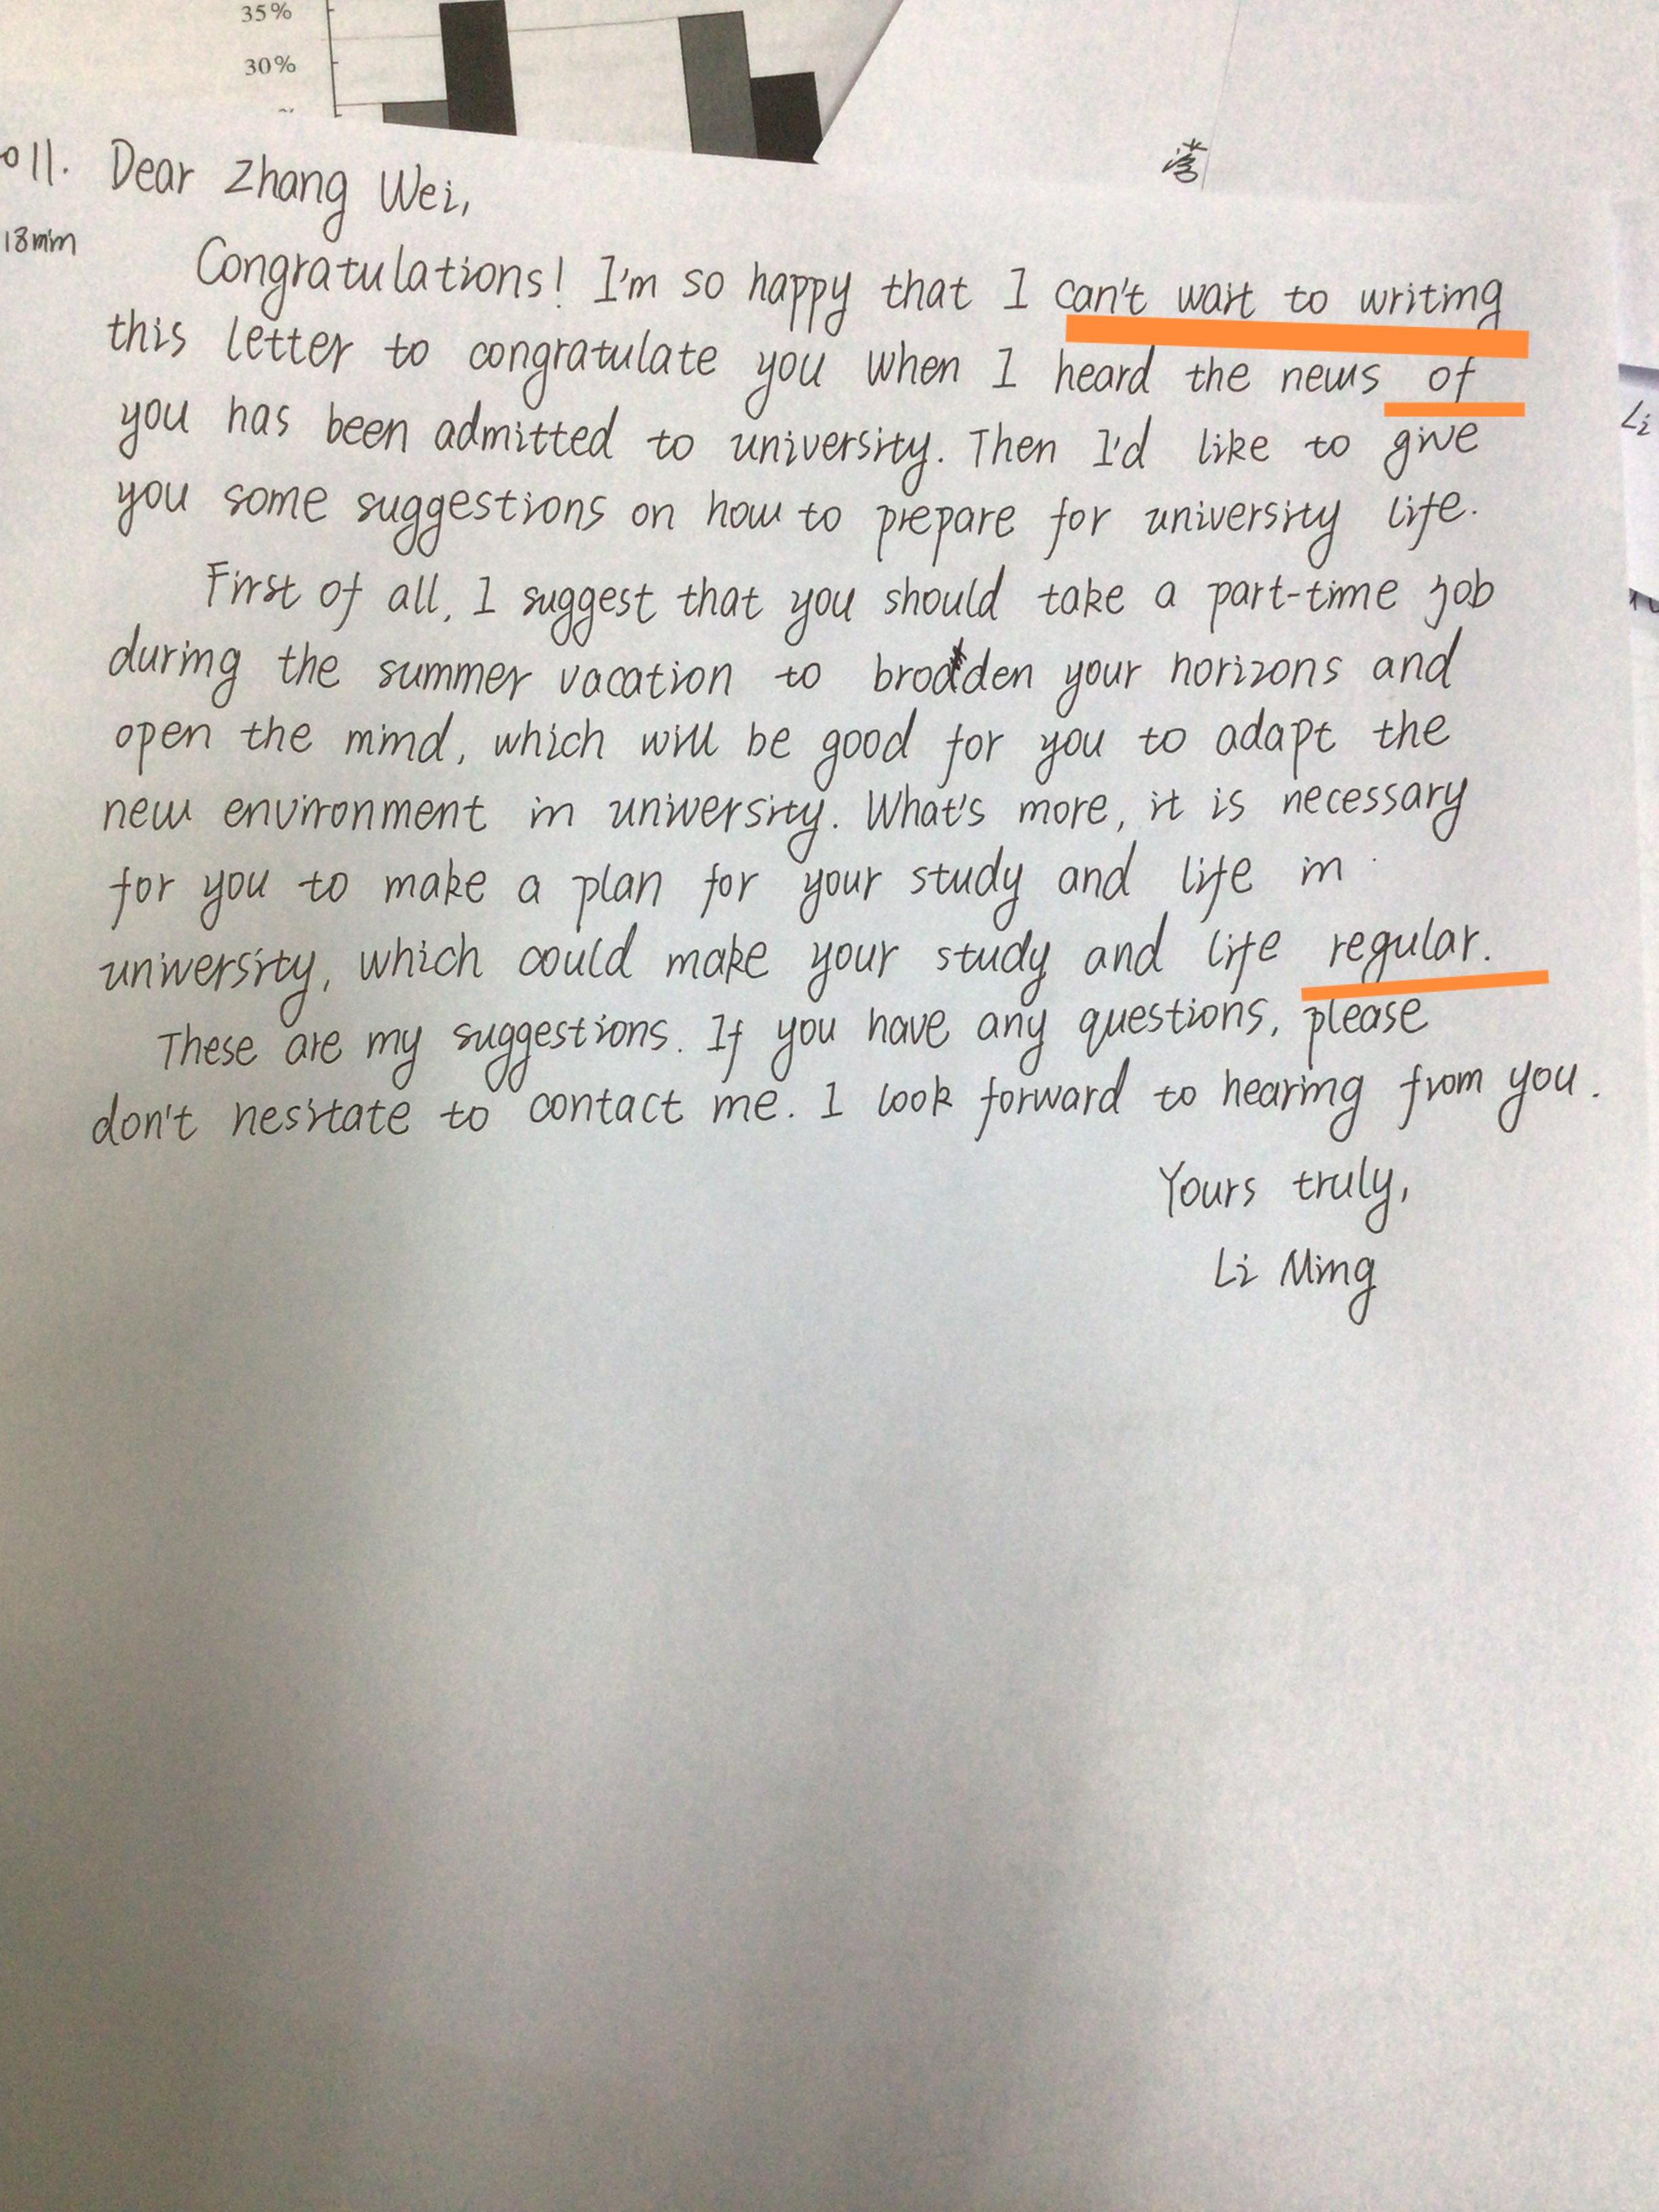 35%
30%
011. Dear Zhang Wei,
18min
Congratulations! I'm so happy that I can't wait to writing
this letter to congratulate you when I heard the news of
you has been admitted to university. Then I'd like to give
you some suggestions on how to prepare for university life.
First of all, I suggest that you should take a part-time job
during the summer vacation to brodden your horizons and
open the mind, which will be good for you to adapt the
new environment in university. What's more, it is necessary
for you to make a plan for your study and life in
university, which could make your study and life regular.
These are my suggestions. If you have any questions, please
don't hesitate to contact me. I look forward to hearing from you.
Yours truly,
Li Ming
Li